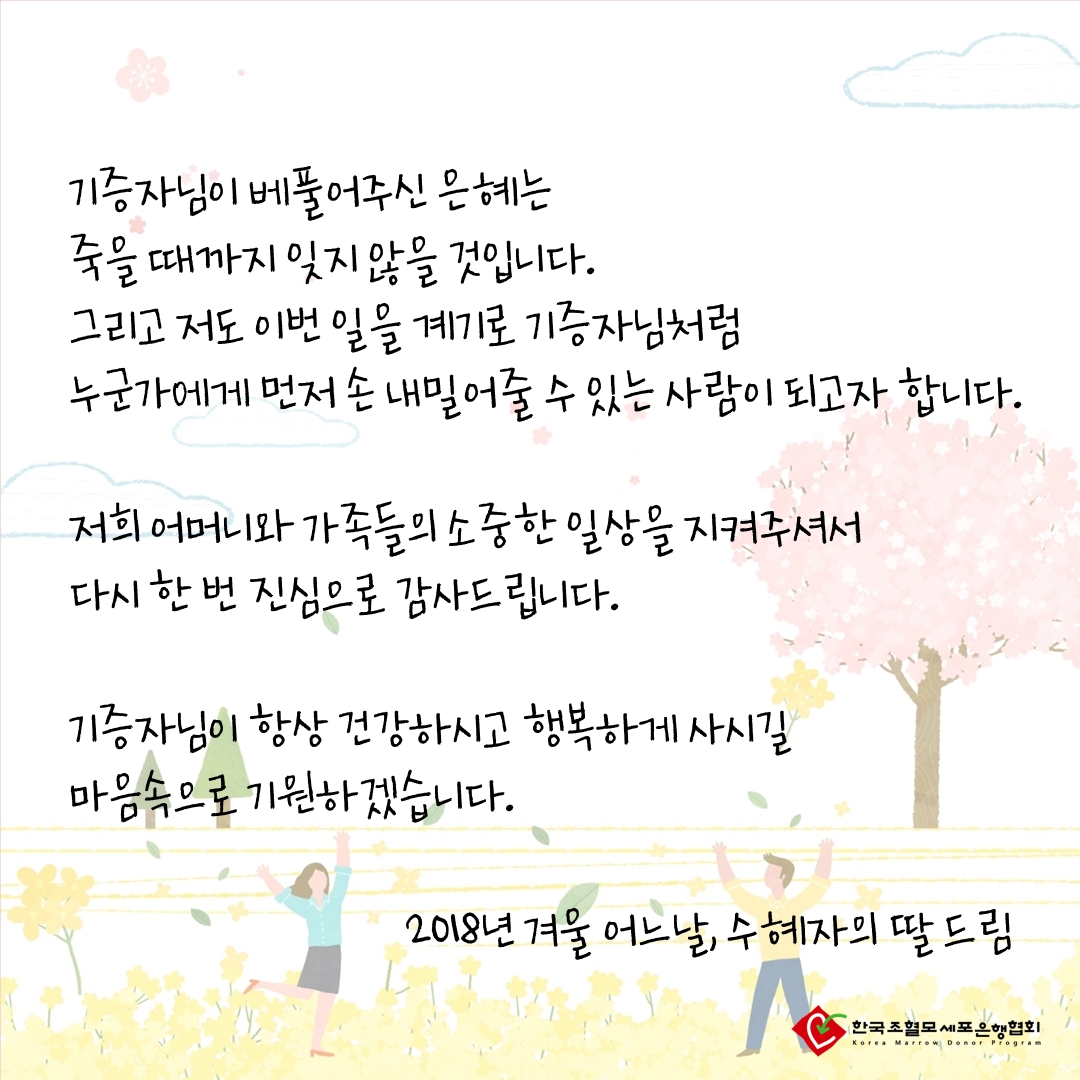 기증자님이 베풀어주신 은혜는
죽을 때까지 잊지 않을 것입니다.
그리고 저도 이번 일을 계기로 기증자님처럼
누군가에게 먼저 손 내밀어줄 수 있는 사람이 되고자 합니다.
저희 어머니와 가족들의 소중한 일상을 지켜주셔서
다시 한 번 진심으로 감사드립니다.
기증자님이 항상 건강하시고 행복하게 사시길
마음속으로 기원하겠습니다.
2018년 겨울 어느날, 수혜자의 딸 드림
한국조혈모세포은행협회
Korea Marrow Donor Program